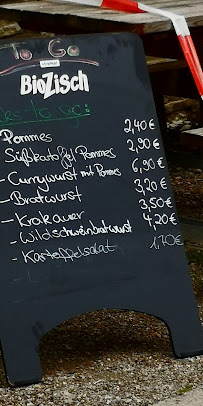 To Go
BioZisch
ks to go:
Pommes 2,40 €
Süßkartoffel Pommes 2,90 €
- Currywurst mit Pommes 6,90 €
- Bratwurst 3,20 €
- Krakauer 3,50 €
- Wildschweinbratwurst 4,20 €
- Kartoffelsalat 1,70 €